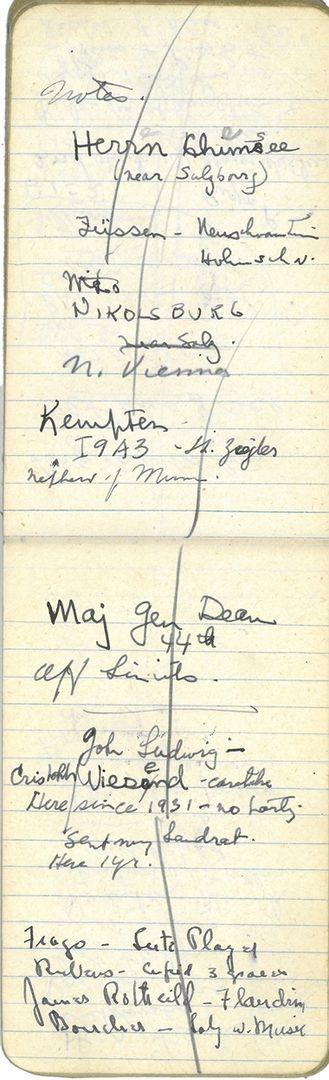 Notes.
Herrn Chiemsee
(near Salzbourg)
Füssen - Neuschwanstein
Hohnschw.
NIKOLSBURG
near Salz.
N. Vienna
Kempten
I9A3 - H. Zeigler
nephew of Mum.
Maj Gen Dean
44th
off limits.
John Ludwig -
Cristoph Wiesend - caretaker
Here since 1931 - no party.
Sent my Landrat.
Here 1 yr.
Frago - Lute Player
Rubens - Cupid 3 graces
James Rothschild - Flandrin
Boucher - Lady w. Music